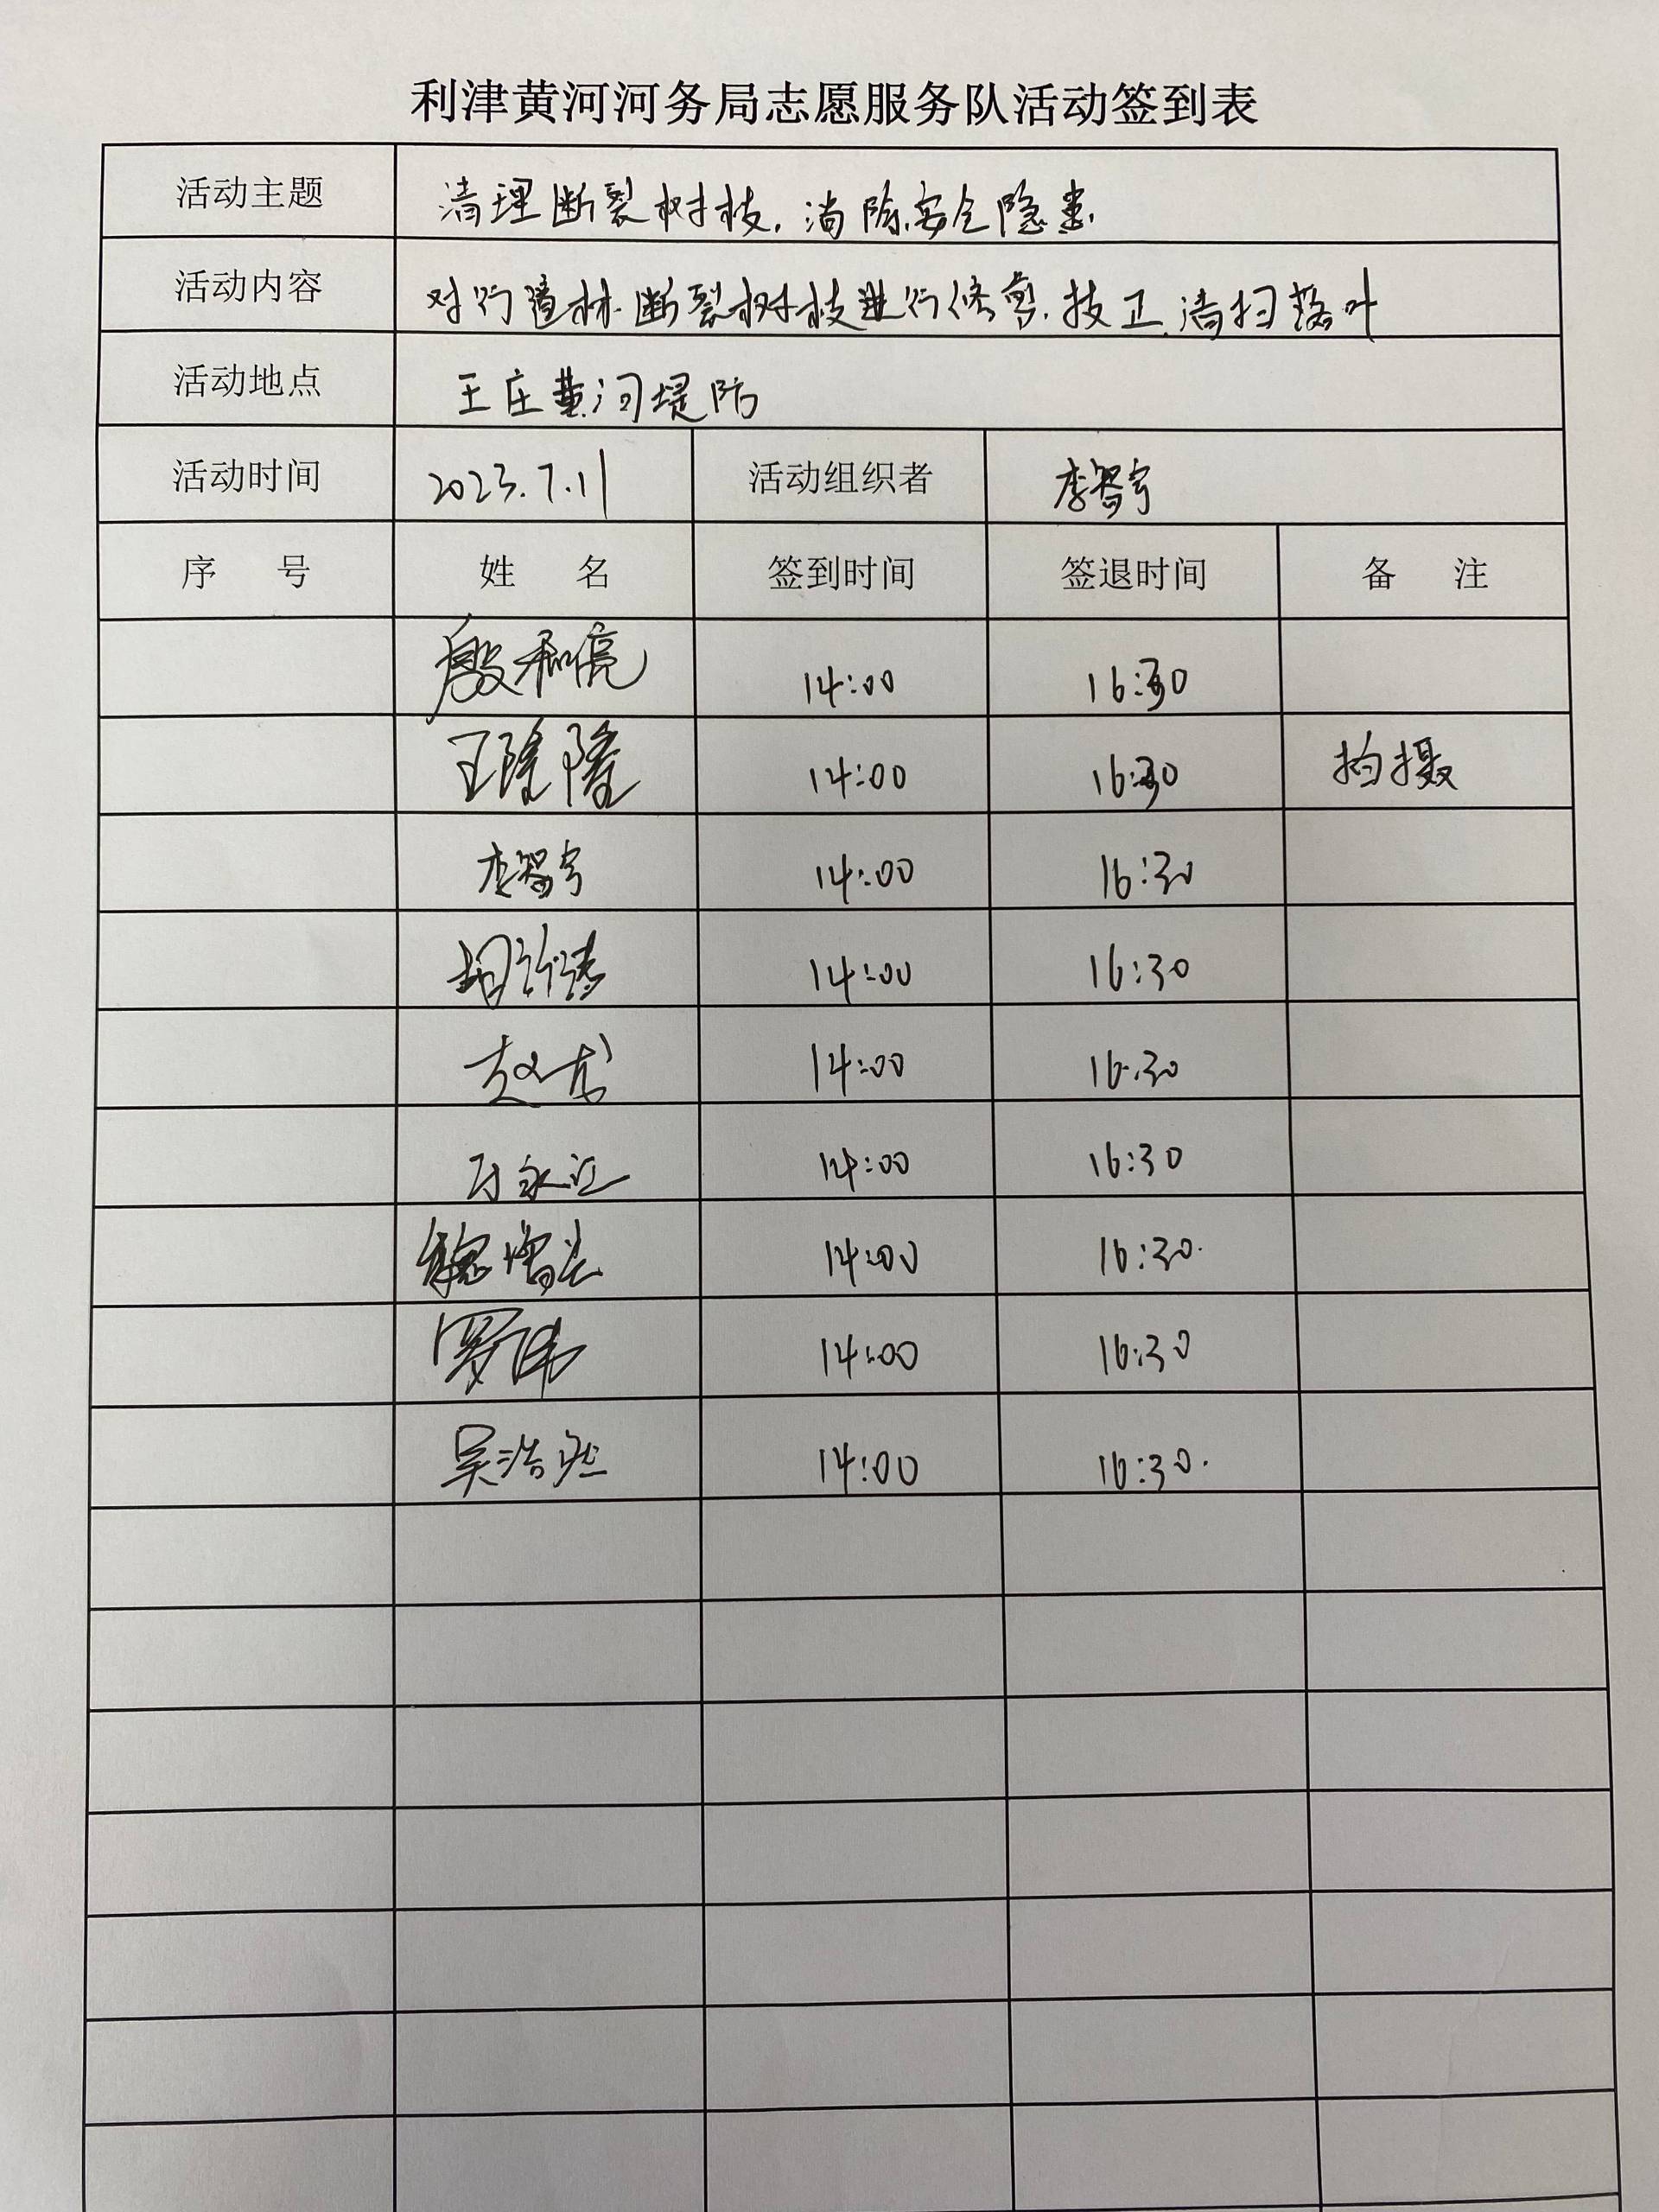 利津黄河河务局志愿服务队活动签到表
活动主题 清理断裂树枝,消除安全隐患
活动内容 对行道林断裂树枝进行修剪.扶正.清扫落叶
活动地点 王庄黄河堤防
活动时间 2023.7.11 活动组织者 李智宇
序 号 姓 名 签到时间 签退时间 备 注
殷和亮 14:00 16:30
王隆隆 14:00 16:30 拍摄
李智宇 14:00 16:30
14:00 16:30
赵龙 14:00 16:30
14:00 16:30
14:00 16:30
罗伟 14:00 16:30
吴浩然 14:00 16:30